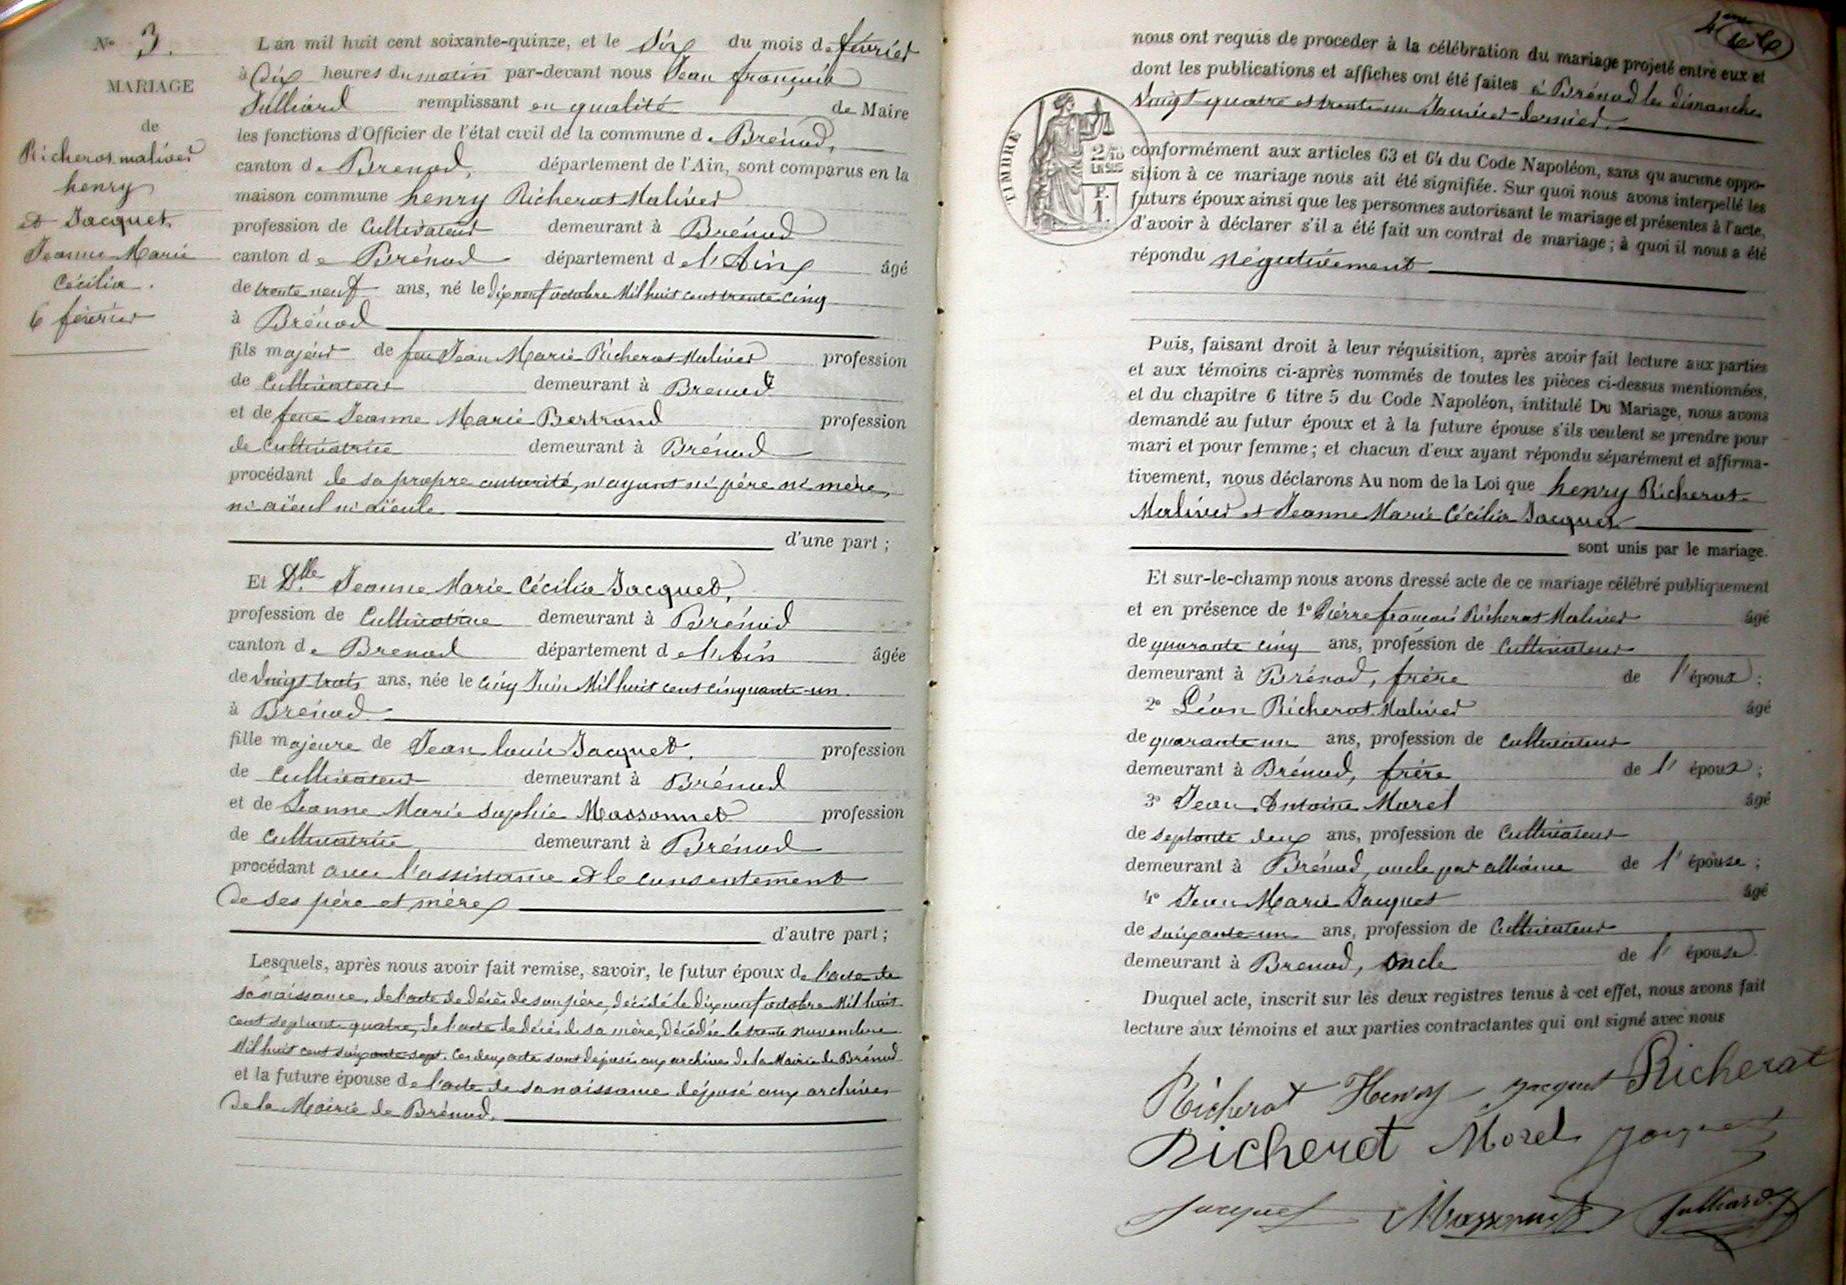 N° 3.
MARIAGE
de
Richerot-Malivert
henry
et Jacquet
Jeanne Marie
Cécilia.
6 février
L'an mil huit cent soixante-quinze, et le Six du mois de février
à Dix heures du matin par-devant nous Jean françois
Julliard remplissant en qualité de Maire
les fonctions d'Officier de l'état civil de la commune de Brénod,
canton de Brenod, département de l'Ain, sont comparus en la
maison commune henry Richerot Malivert
profession de Cultivateur demeurant à Brénod
canton de Brénod département de l'Ain âgé
de trente neuf ans, né le dix neuf octobre Mil huit cent trente cinq
à Brénod
fils majeur de feu Jean Marie Richerot Malivert profession
de Cultivateur demeurant à Brenod
et de feue Jeanne Marie Bertrand profession
de Cultivatrice demeurant à Brénod
procédant de sa propre autorité, n'ayant ni père ni mère,
ni aïeul ni aïeule
d'une part ;
Et Dlle Jeanne Marie Cécilia Jacquet,
profession de Cultivatrice demeurant à Brénod
canton de Brenod département de l'Ain âgée
de vingt trois ans, née le cinq Juin Mil huit cent cinquante-un
à Brénod
fille majeure de Jean louis Jacquet, profession
de Cultivateur demeurant à Brénod
et de Jeanne Marie Sophie Massonnet profession
de Cultivatrice demeurant à Brénod
procédant avec l'assistance et le consentement
de ses père et mère
d'autre part ;
Lesquels, après nous avoir fait remise, savoir, le futur époux de l'acte de
sa naissance, de l'acte de décès de son père, décédé le dix neuf octobre Mil huit
cent septante quatre, de l'acte de décès de sa mère, décédée le trente novembre
Mil huit cent soixante-sept. Ces deux acte sont déposés aux archives de la Mairie de Brénod
et la future épouse de l'acte de sa naissance déposé aux archives
de la Mairie de Brénod.
4me
nous ont requis de proceder à la célébration du mariage projeté entre eux et
dont les publications et affiches ont été faites à Brénod les dimanches
vingt-quatre et trente un Janvier dernier.
TIMBRE
2/10
EN SUS
F.
1.
conformément aux articles 63 et 64 du Code Napoléon, sans qu'aucune oppo-
sition à ce mariage nous ait été signifiée. Sur quoi nous avons interpellé les
futurs époux ainsi que les personnes autorisant le mariage et présentes à l'acte,
d'avoir à déclarer s'il a été fait un contrat de mariage ; à quoi il nous a été
répondu négativement
Puis, faisant droit à leur réquisition, après avoir fait lecture aux parties
et aux témoins ci-après nommés de toutes les pièces ci-dessus mentionnées,
et du chapitre 6 titre 5 du Code Napoléon, intitulé Du Mariage, nous avons
demandé au futur époux et à la future épouse s'ils veulent se prendre pour
mari et pour femme ; et chacun d'eux ayant répondu séparément et affirma-
tivement, nous déclarons Au nom de la Loi que henry Richerot-
Malivert et Jeanne Marie Cécilia Jacquet
sont unis par le mariage.
Et sur-le-champ nous avons dressé acte de ce mariage célébré publiquement
et en présence de 1° Pierre françois Richerot Malivert âgé
de quarante cinq ans, profession de Cultivateur
demeurant à Brénod, frère de l'époux ;
2° Léon Richerot-Malivert âgé
de quarante un ans, profession de Cultivateur
demeurant à Brénod, frère de l'époux ;
3° Jean Antoine Morel âgé
de septante deux ans, profession de Cultivateur
demeurant à Brénod, oncle par alliance de l'épouse ;
4° Jean Marie Jacquet âgé
de soixante-un ans, profession de Cultivateur
demeurant à Brenod, oncle de l'épouse.
Duquel acte, inscrit sur les deux registres tenus à cet effet, nous avons fait
lecture aux témoins et aux parties contractantes qui ont signé avec nous
Richerot Henry Jacquet Richerat
Richerot Morel Jacquet
Jacquet Massonnet Julliard